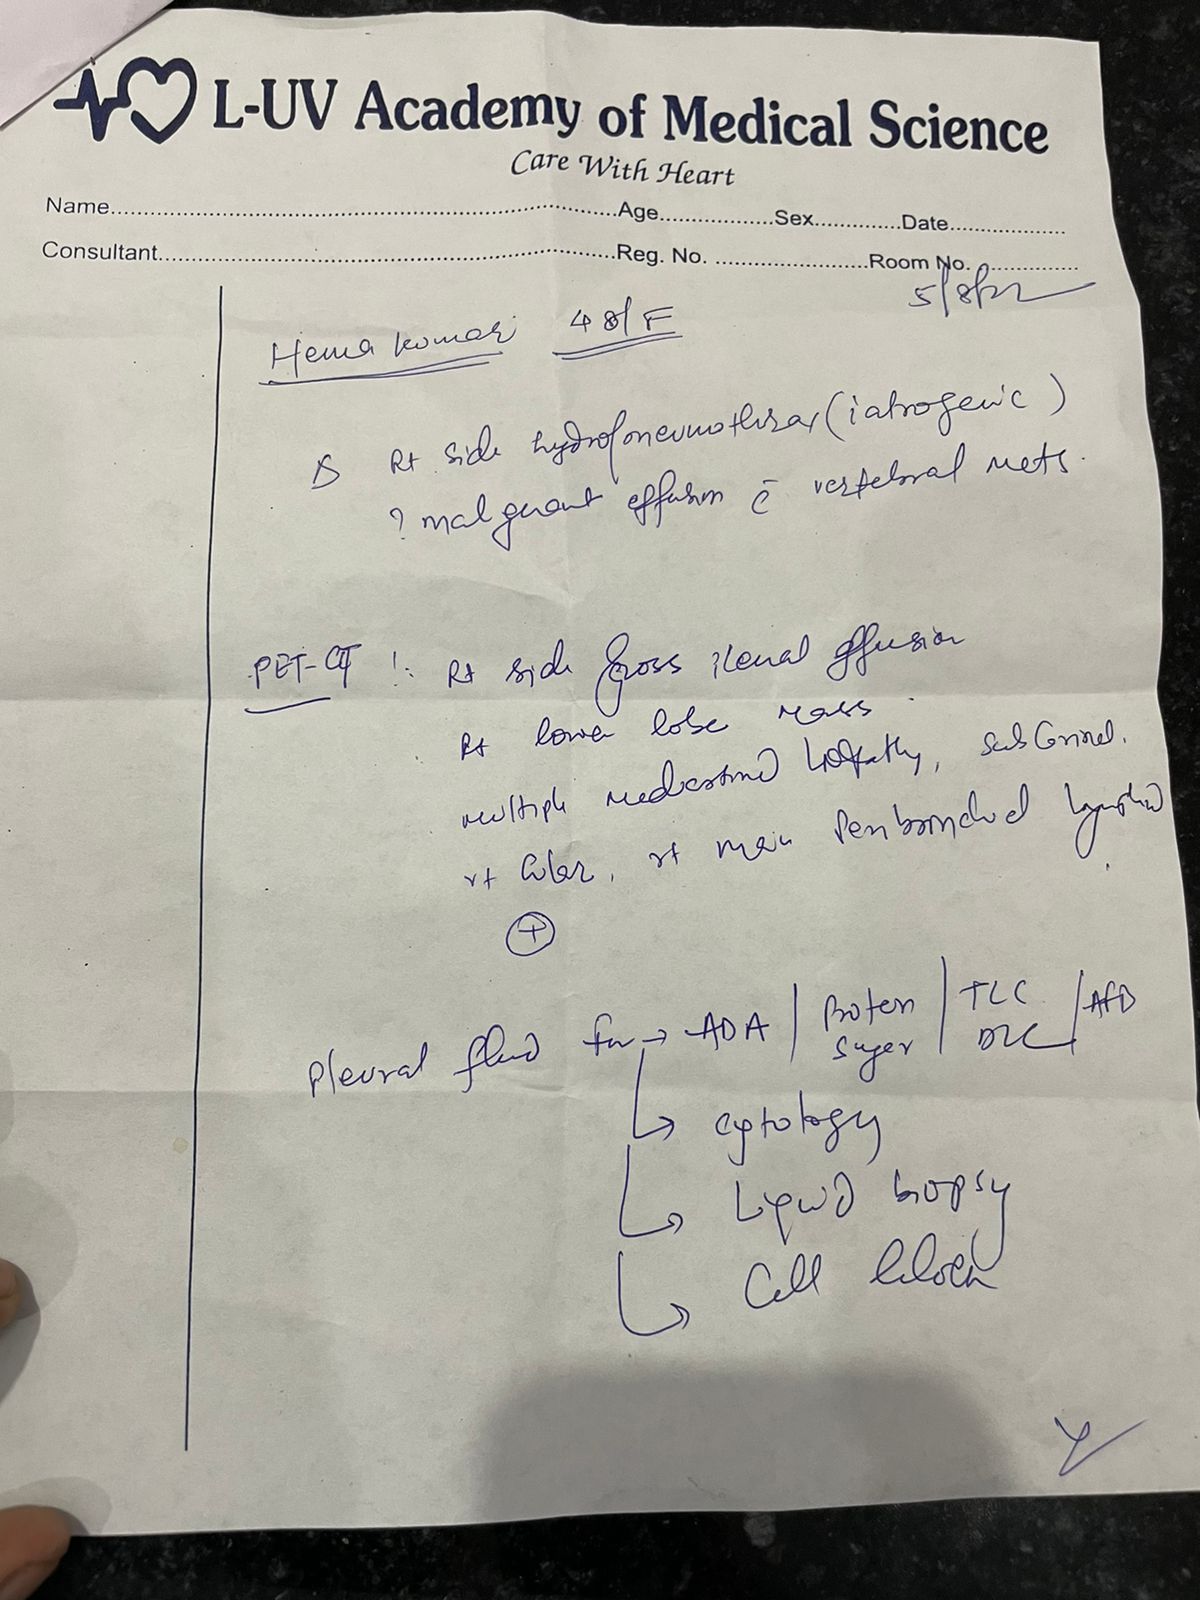 L-UV Academy of Medical Science
Care With Heart
Name.................Age.................Sex.............Date.................
Consultant.................Reg. No. .................Room No. .................
5/8/22
Hema Kumari 48/F
Δ Rt side hydropneumothorax (iatrogenic)
? malignant effusion c̄ vertebral mets.
PET-CT : Rt side gross pleural effusion
Rt lower lobe mass
multiple mediastinal, subcarinal,
rt hilar, rt main peribronchial
(+)
Pleural fluid for → ADA / Protein / TLC / AFB
Sugar DLC
↳ cytology
↳ Liquid biopsy
↳ Cell block